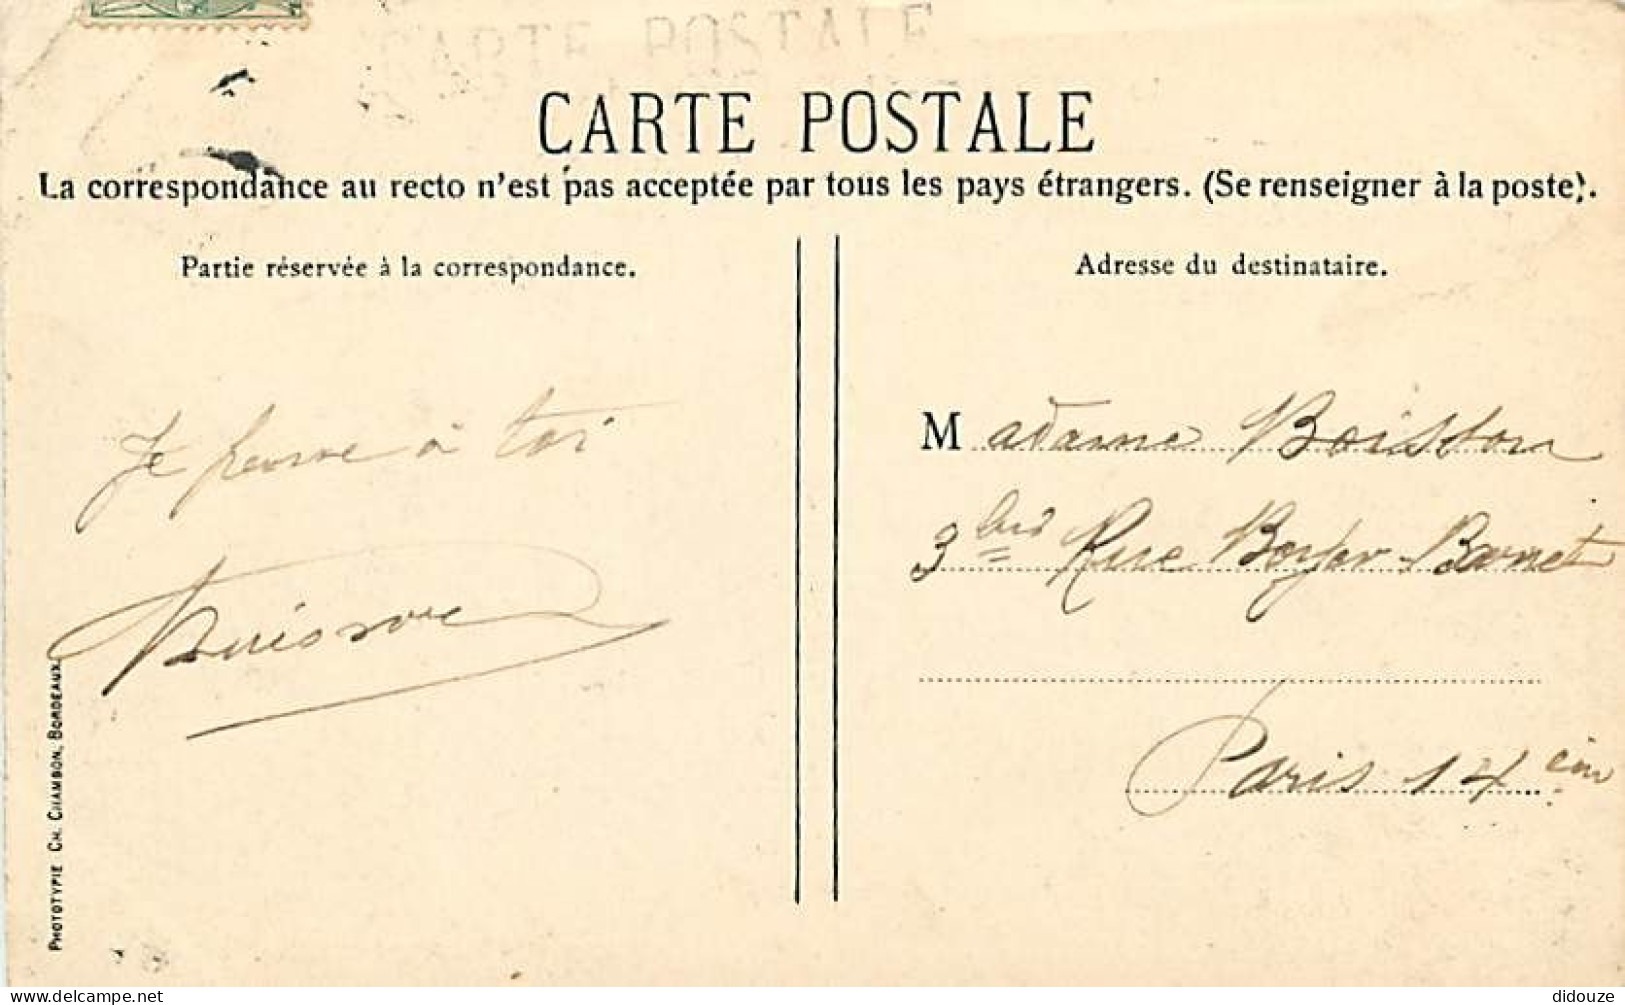 CARTE POSTALE
CARTE POSTALE
La correspondance au recto n'est pas acceptée par tous les pays étrangers. (Se renseigner à la poste).
Partie réservée à la correspondance.
Je pense à toi
PHOTOTYPIE CH. CHAMBON, BORDEAUX
Adresse du destinataire.
Madame Boisson
3 bis Rue Boyer-Barret
Paris 14 èm
delcampe.net
didouze